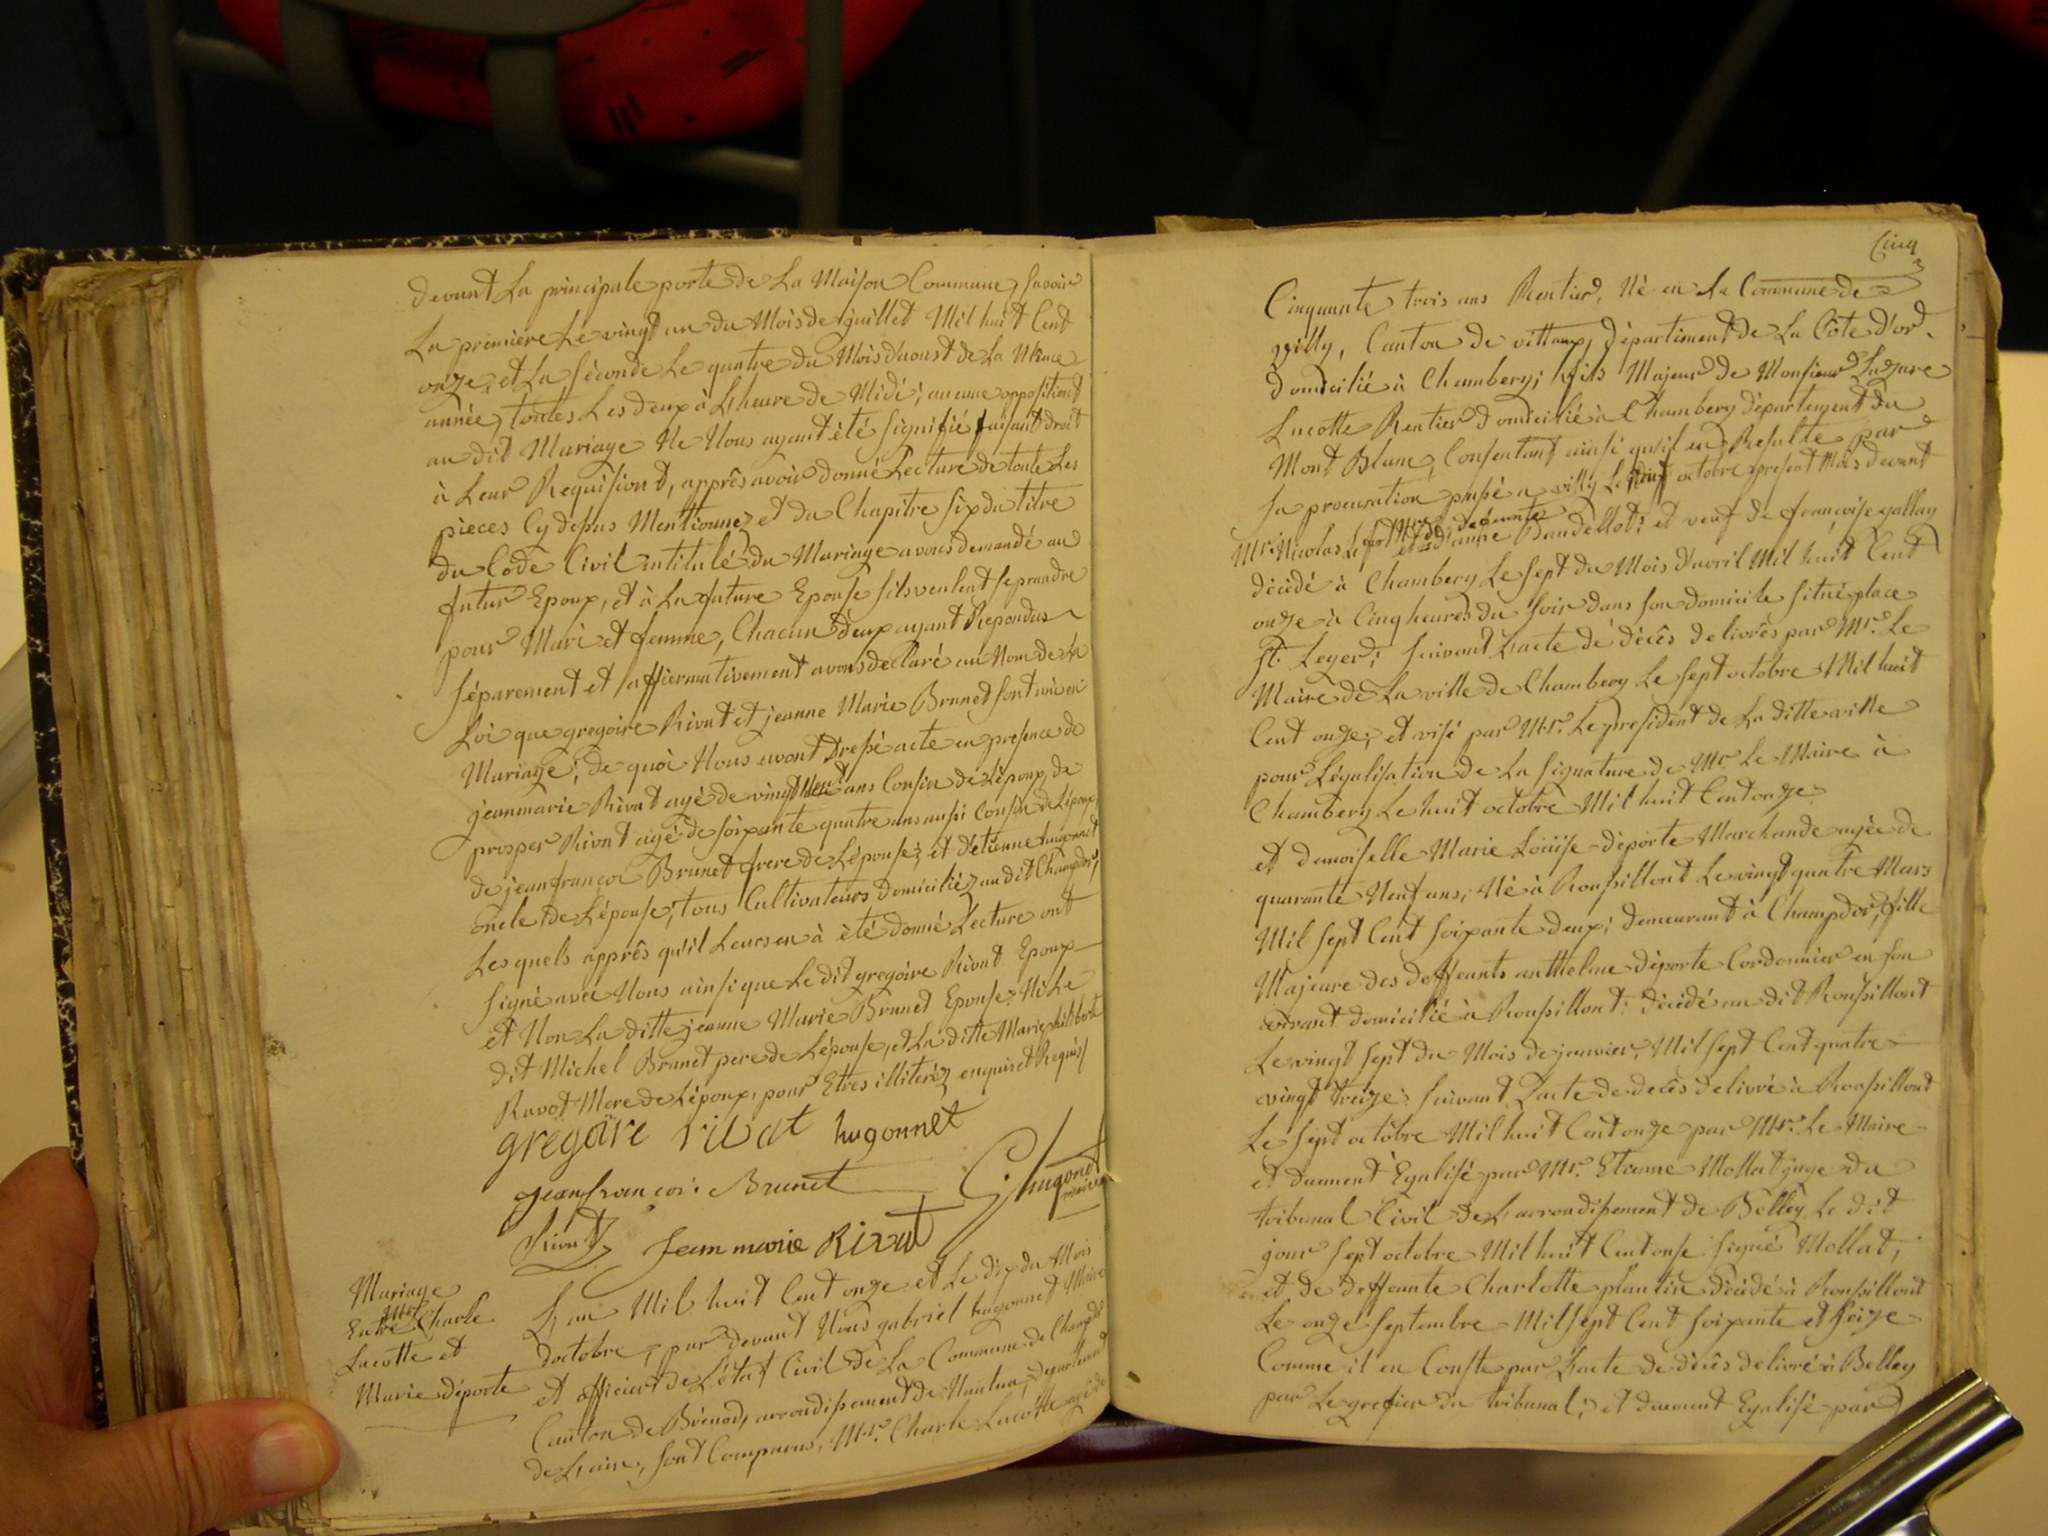 devant La principale porte de La Maison Commune, Savoir
La premiere Le vingt un du Mois de juillet Mil huit Cent
onze, et La Séconde Le quatre du Mois d'aoust de La Même
année, toutes Les deux à L'heure de Midi; aucune opposition
au dit Mariage Ne Nous ayant été Signifié faisant droit
à Leur Requisiont, apprês avoir donné Lecture de toute Les
pièces Cy dessus Mentionnez et du Chapitre Six du titre
du Code Civil intitulé du Mariage avons demandé au
futur Epoux, et à La future Epouse S'ils veulent se prendre
pour Mari et femme, Chacun d'eux ayant Repondus
Séparement et affiermativement avons declaré au Nom de La
Loi que gregoire Rivat et jeanne Marie Brunet Sont unis en
Mariage; de quoi Nous avont dressé acte en presence de
jeanmarie Rivat agé de vingt ans Cousin de L'époux, de
prosper Rivat agé de soixante quatre ans aussi Cousin de L'époux,
de jean françoi Brunet frere de L'épouse; et d'étienne hugonnet
oncle de L'épouse; tous Cultivateurs domiciliéz au dit Champdor,
Les quels apprês qu'il Leurs en à été donné Lecture ont
Signé avec Nous ainsi que Le dit gregoire Rivat Epoux
et Non La ditte jeanne Marie Brunet Epouse; Ni Le
dit Michel Brunet pere de L'épouse, et La ditte Marie philiberte
Ravot Mere de L'époux, pour Etres illiteréz enquis et Requis/
gregoire rivat hugonnet
jean françoi Brunet
G hugonnet
maire
Rivat Jean marie Rivat
Mariage
Entre Mr. Charle
Lacotte et
Marie déporte
L'an Mil huit Cent onze et Le dix du Mois
d'octobre, par devant Nous gabriel hugonnet Maire
et officier de L'état Civil de La Commune de Champdor
Canton de Brénod, arrondissement de Nantua, departement
de L'ain, Sont Comparus, Mr. Charle Lacotte agé de
Cinq
Cinquante trois ans Rentier, Né en La Commune de
villy, Canton de vitteaux, département de La Côte d'or.
domicilié à Chambery; fils Majeur de Monsieur Lazare
Lacotte Rentier domicilié à Chambery département du
Mont Blanc, Consentant ainsi qu'il en Resulte par
Sa procuration passé a villy Le Neuf octobre present Mois devant
Mr. Nicolas et de defunte anne Baudellot; et veuf de françoise gallay
décédé à Chambery Le Sept du Mois d'avril Mil huit Cent
onze à Cinq heures du Soir dans Son domicile Situé place
St. Leger; Suivant L'acte de décês delivrés par Mr. Le
Maire de La ville de Chambery Le Sept octobre Mil huit
Cent onze; et visé par Mr. Le president de La ditte ville
pour Légalisation de La Signature de Mr Le Maire à
Chambery Le huit octobre Mil huit Cent onze.
et demoiselle Marie Loüise déporte Marchande agée de
quarante Neuf ans, Né à Roussillont Le vingt quatre Mars
Mil Sept Cent Soixante deux; demeurant à Champdor, fille
Majeure des deffeunts anthelme déporte Cordonnier en Son
vivant domicilié à Roussillont: décédé au dit Roussillont
Le vingt Sept du Mois de janvier, Mil Sept Cent quatre
vingt treize: Suivant L'acte de decês delivré à Roussillont
Le Sept octobre Mil huit Cent onze par Mr. Le Maire
et dument Egalisé par Mr. Etienne Mollat juge du
tribunal Civil de L'arrondissement de Belley Le dit
jour Sept octobre Mil huit Cent onse Signé Mollat,
et de deffeunte Charlotte plantin décédé à Roussillont
Le onze Septembre Mil Sept Cent Soixante et Seize
Comme il en Conste par L'acte de décês delivré à Belley
par Le grefier du tribunal; et dument Egalisé par